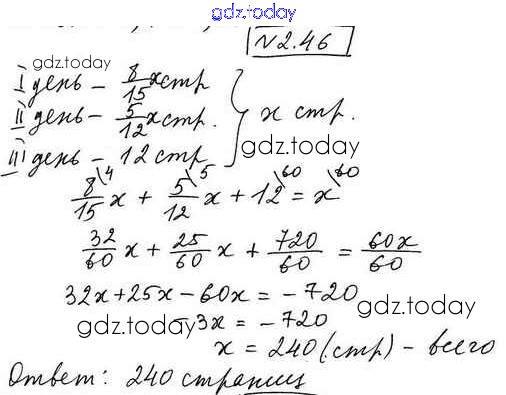 gdz.today
N2.46
gdz.today
I день – 8/15 x стр
II день – 5/12 x стр. } x стр.
gdz.today
III день – 12 стр
8/15 \4 x + 5/12 \5 x + 12 \60 = x \60
32/60 x + 25/60 x + 720/60 = 60x/60
32x + 25x – 60x = – 720
gdz.today
gdz.today
– 3x = – 720
x = 240 (стр) – всего
Ответ: 240 страниц